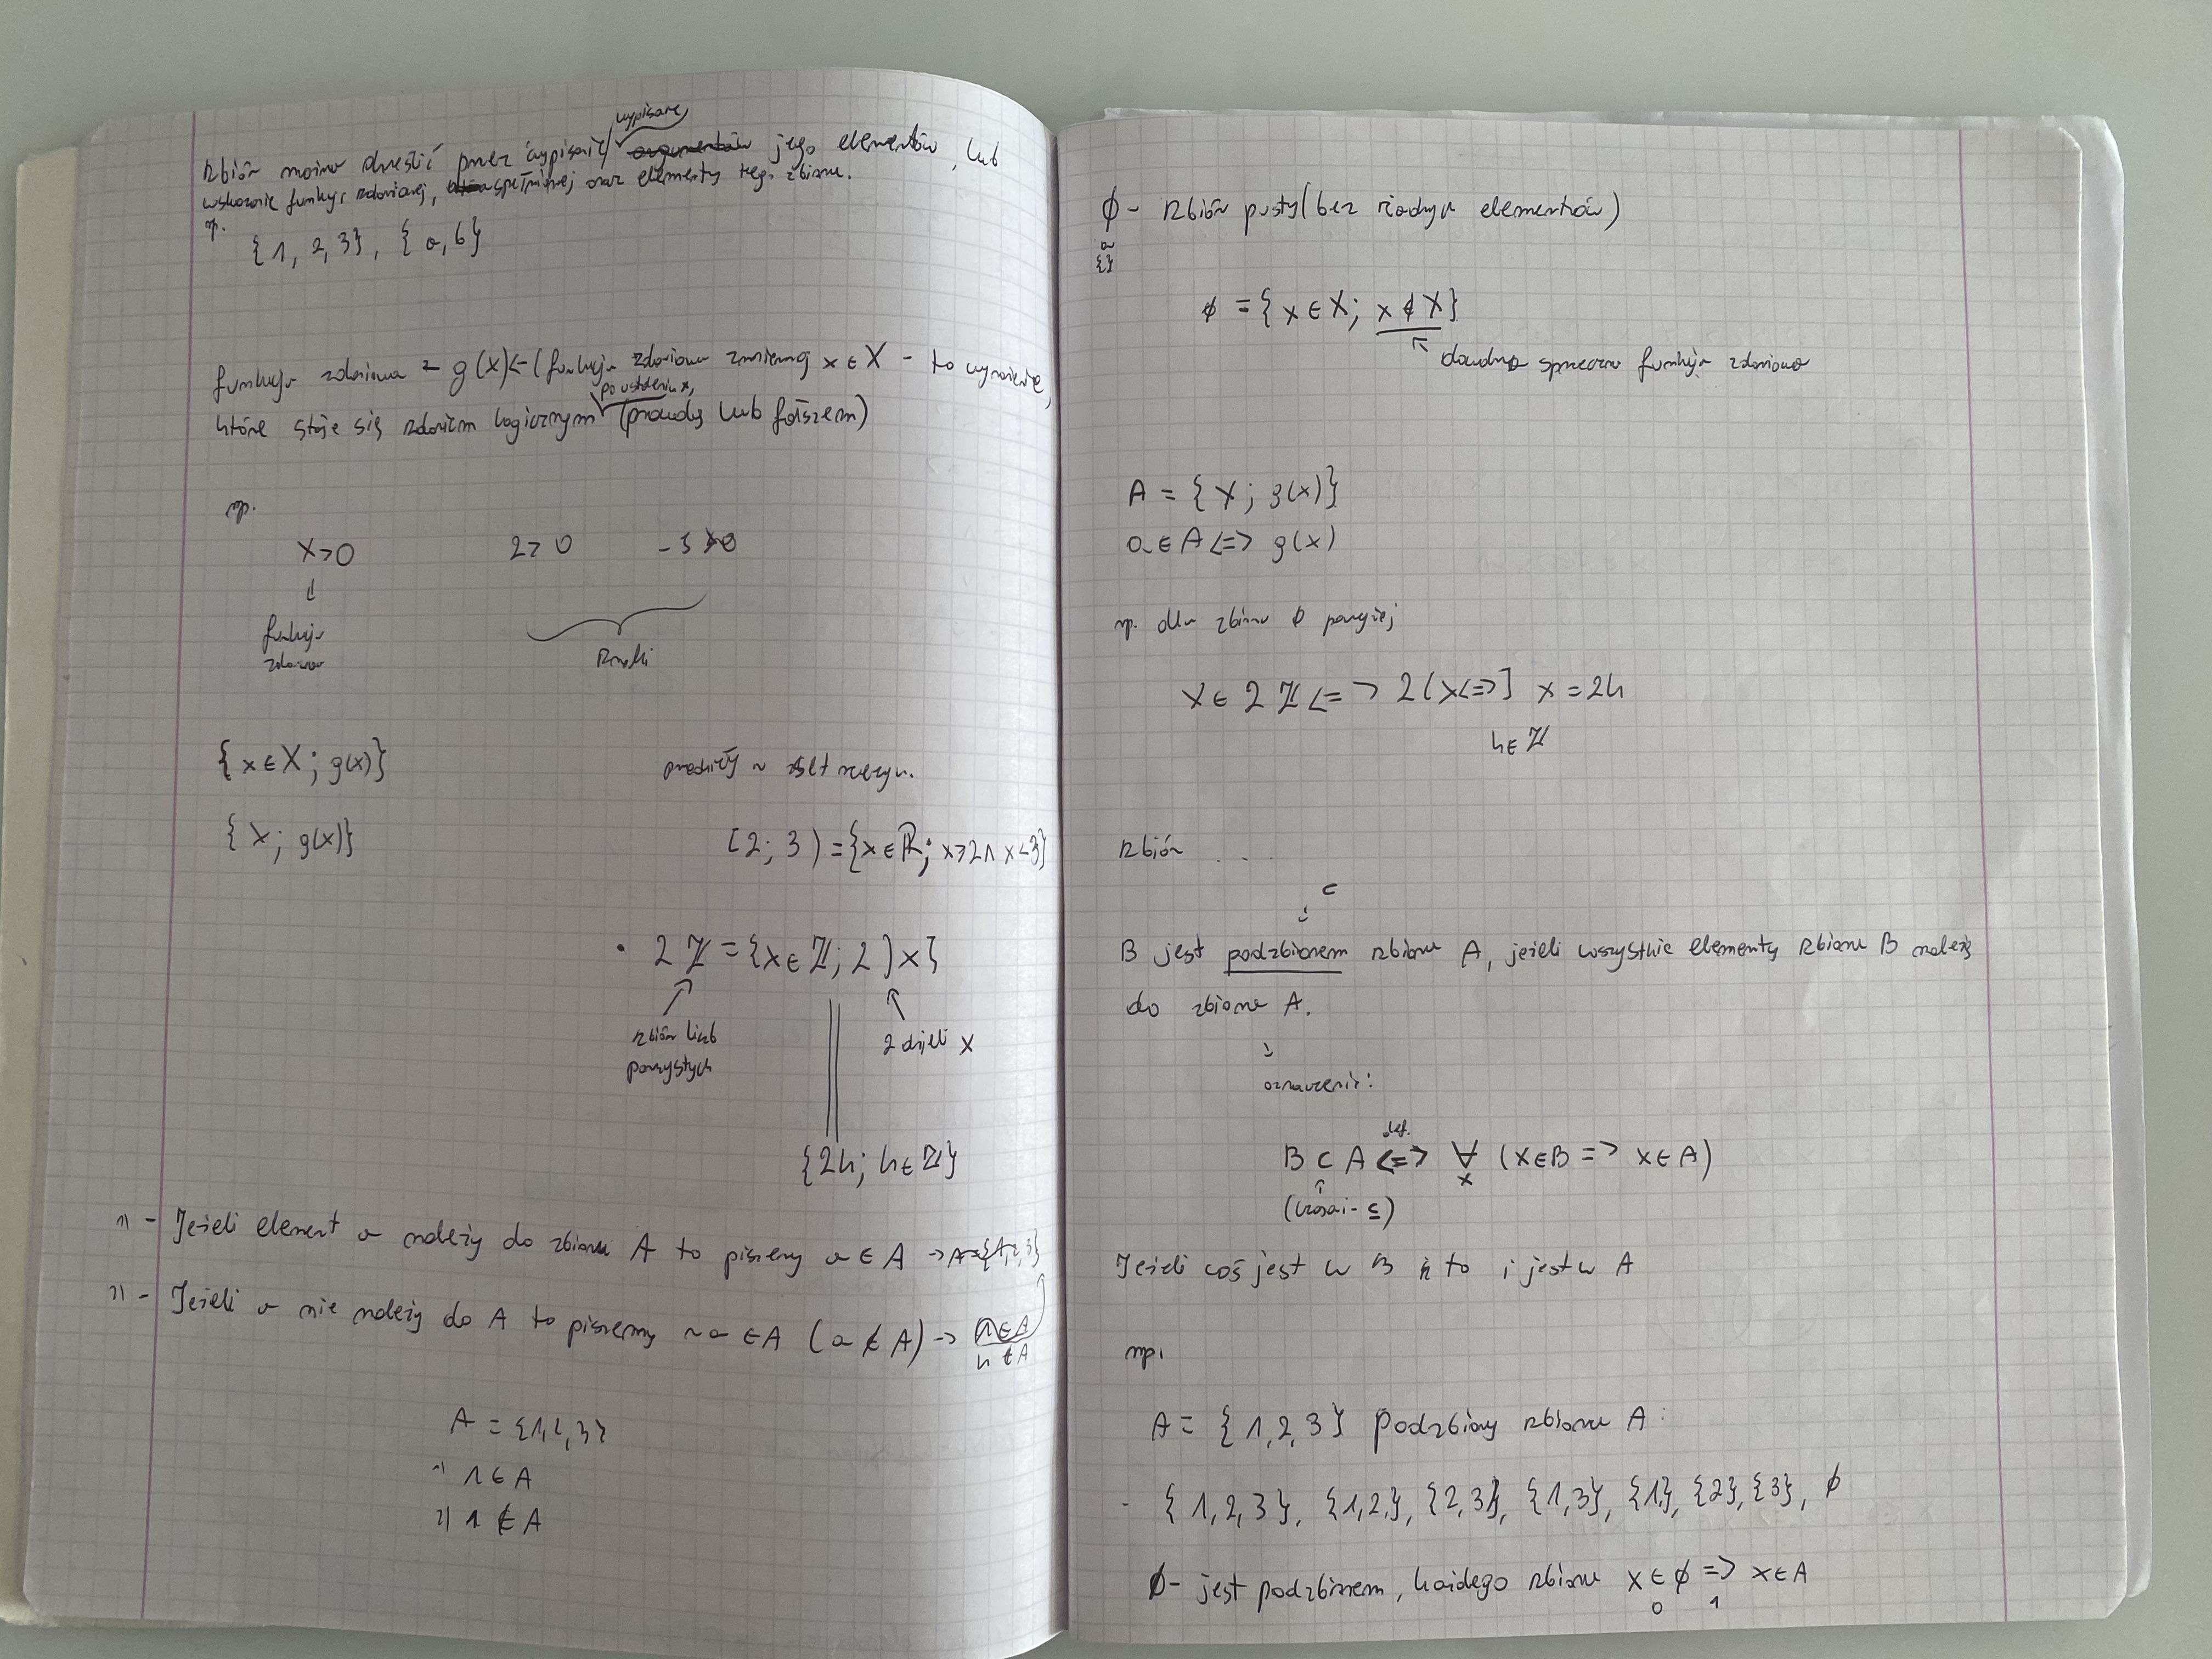 Zbiór można określić przez wypisanie jego elementów, lub
wypisanie
wskazanie funkcji zdaniowej, spełnianej oraz elementy tego zbioru.
np.
{1, 2, 3}, {a, b}
funkcja zdaniowa = g(x) <- (funkcja zdaniowa zmiennej x ∈ X - to wyrażenie,
które staje się zdaniem logicznym (prawdą lub fałszem)
po wstawieniu x,
np.
x > 0 2 > 0 -3 ≯ 0
↓
funkcja
zdaniowa
{x ∈ X; g(x)}
{x; g(x)}
(2; 3) = {x ∈ ℝ; x > 2 ∧ x < 3}
• 2ℤ = {x ∈ ℤ; 2 | x}
zbiór liczb
parzystych
2 dzieli x
{2k; k ∈ ℤ}
1) - Jeżeli element a należy do zbioru A to piszemy a ∈ A -> A = {1, 2, 3}
2) - Jeżeli a nie należy do A to piszemy ~a ∈ A (a ∉ A) -> 1 ∈ A
4 ∉ A
A = {1, 2, 3}
1) 1 ∈ A
2) 1 ∉ A
∅ - zbiór pusty (bez żadnych elementów)
{}
∅ = {x ∈ X; x ∉ X}
↖ dowolna sprzeczna funkcja zdaniowa
A = {x; g(x)}
a ∈ A <=> g(x)
np. dla zbioru powyżej
x ∈ 2ℤ <=> 2 | x <=> ∃ x = 2k
k ∈ ℤ
Zbiór . . .
⊂
B jest podzbiorem zbioru A, jeżeli wszystkie elementy zbioru B należą
do zbioru A.
oznaczenie:
def.
B ⊂ A <=> ∀ (x ∈ B => x ∈ A)
x
↑
(czasami - ⊆)
Jeżeli coś jest w B to i jest w A
np.
A = {1, 2, 3} Podzbiory zbioru A:
- {1, 2, 3}, {1, 2}, {2, 3}, {1, 3}, {1}, {2}, {3}, ∅
∅ - jest podzbiorem, każdego zbioru x ∈ ∅ => x ∈ A
0 1